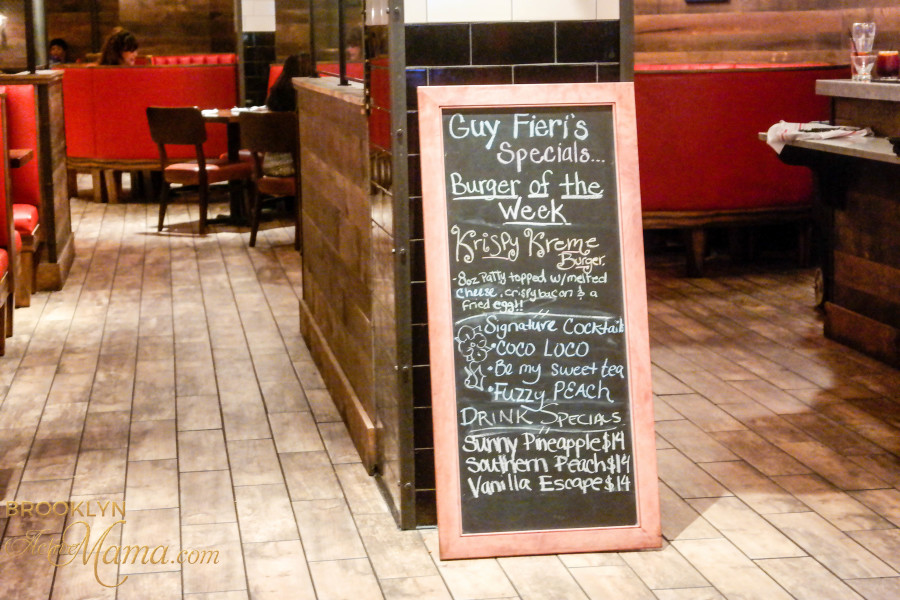 Guy Fieri's
Specials...
Burger of the
Week
Krispy Kreme
Burger.
-8oz patty topped w/melted
cheese, crispy bacon & a
fried egg!!
Signature Cocktails
•COCO LOCO
•Be my sweet tea
•Fuzzy PEACH
DRINK Specials
Sunny Pineapple $14
Southern Peach $14
Vanilla Escape $14
BROOKLYN
Mama.com